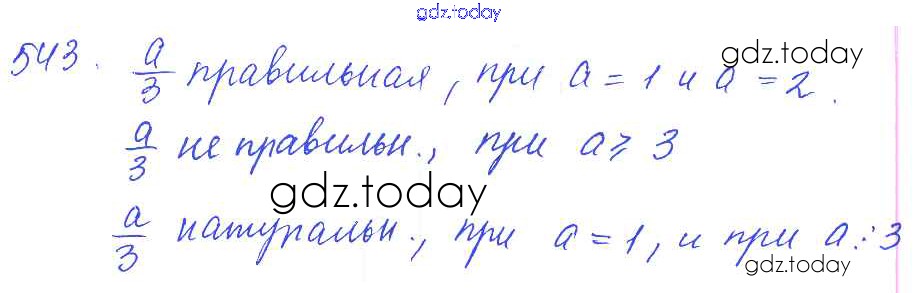 gdz.today
543. a/3 правильная, при a = 1 и a = 2.
gdz.today
a/3 не правильн., при a ⩾ 3
gdz.today
a/3 натуральн., при a = 1, и при a ⋮ 3
gdz.today